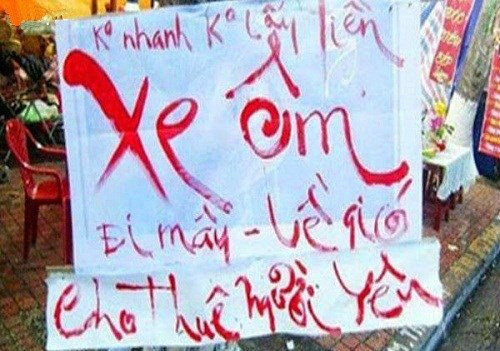 Ko nhanh Ko lấy tiền
Xe ôm
Đi mây - Về gió
Cho Thuê người Yêu